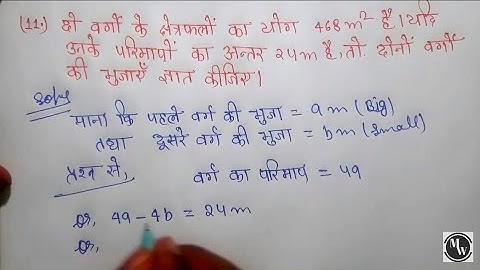 (11.) दो वर्गों के क्षेत्रफलों का योग 468m² है। यदि
उनके परिमापों का अन्तर 24m है तो दोनों वर्गों
की भुजाएँ ज्ञात कीजिए।
Solve
माना कि पहले वर्ग की भुजा = a m (Big)
तथा दूसरे वर्ग की भुजा = b m (Small)
प्रश्न से, वर्ग का परिमाप = 4a
Or, 4a - 4b = 24m
Or,
MW